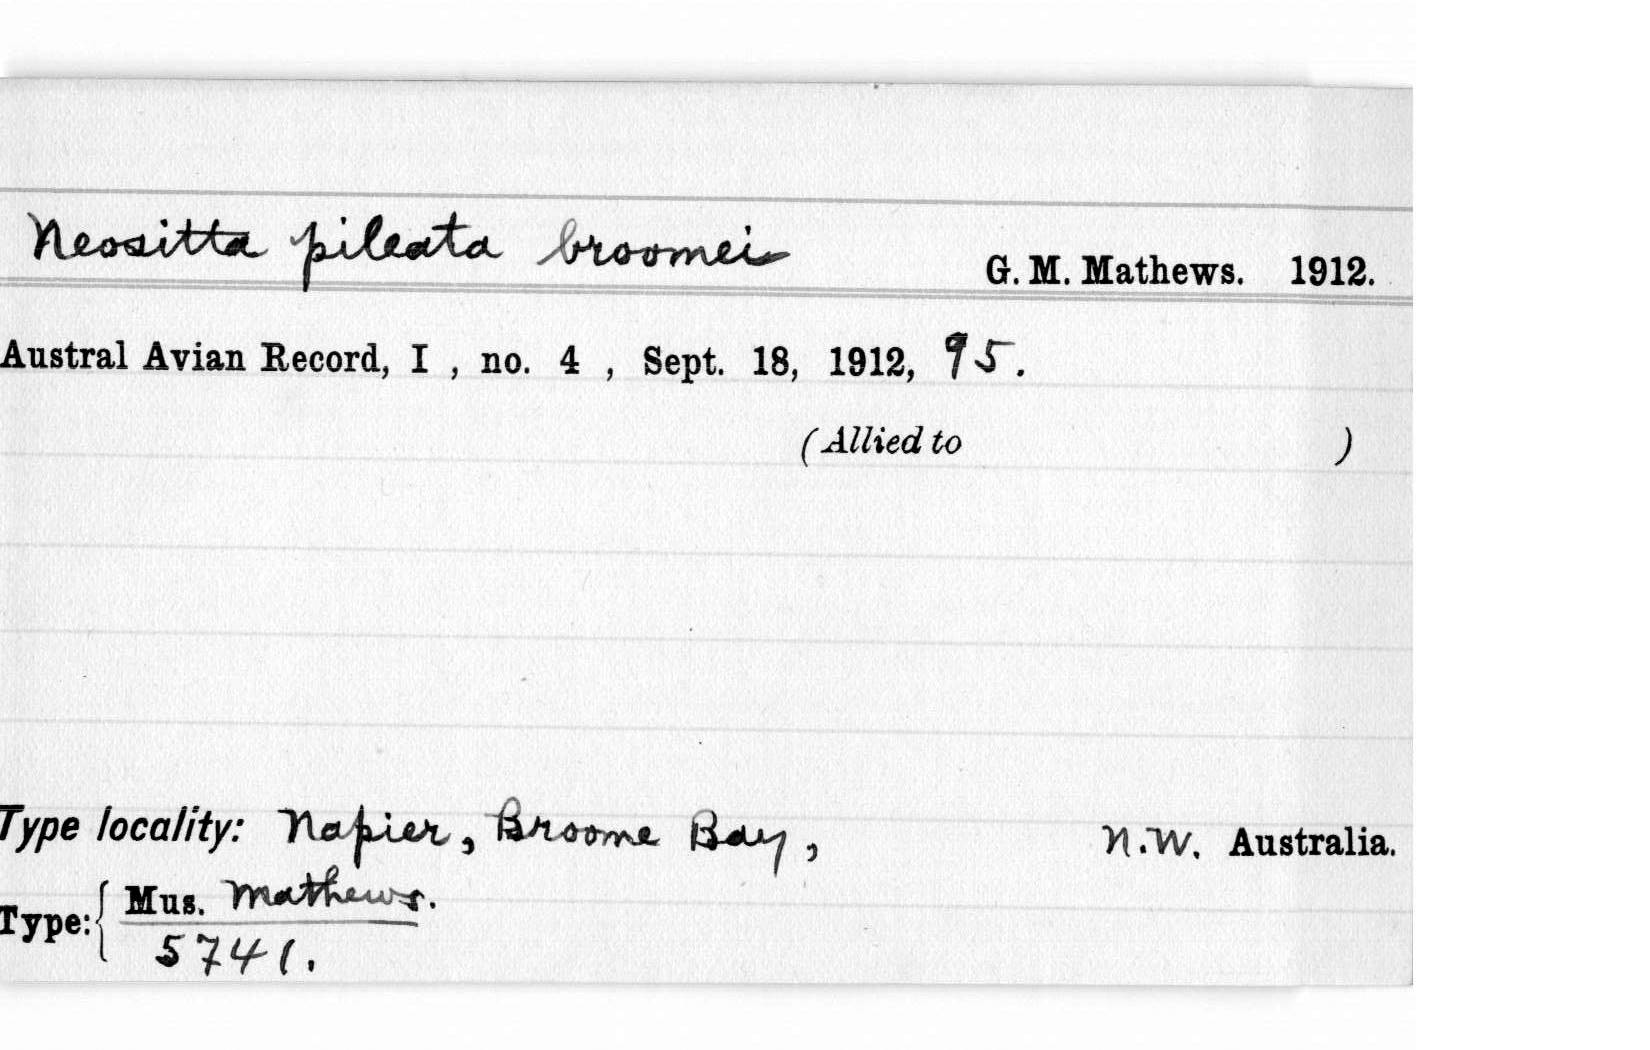 Neositta pileata broomei G. M. Mathews. 1912.
Austral Avian Record, I , no. 4 , Sept. 18, 1912, 95.
(Allied to )
Type locality: Napier, Broome Bay, N.W. Australia.
Type: { Mus. Mathews.
5741.